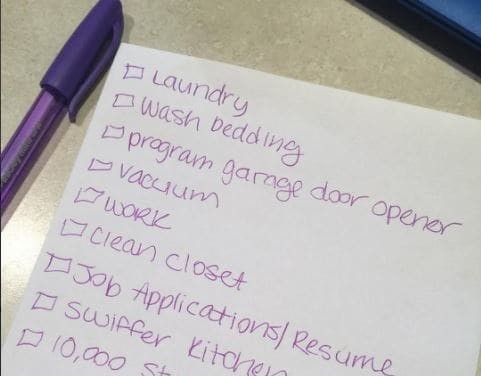 Laundry
wash bedding
program garage door opener
vacuum
work
clean closet
Job Applications/Resume
swiffer kitchen
10,000